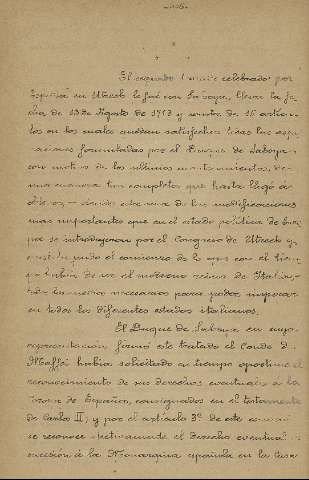 El segundo celebrado por
España en Utrech lo fué con Saboya, lleva la fe-
cha de 13 de Agosto de 1713 y consta de 15 artícu-
los en los cuales quedan satisfechas todas las aspi-
raciones formuladas por el Duque de Saboya
con motivo de los últimos acontecimientos, de
una manera tan completa que hasta llegó á
siendo esta una de las modificaciones
mas importantes que en el estado político de Euro-
pa se introdujeron por el Congreso de Utrech y
el comienzo de lo que con el tiem-
po habia de ser el moderno reino de Italia,
necesarios para poder imperar
en todos los diferentes estados italianos.
El Duque de Saboya en cuya
representacion firmó este tratado el Conde de
Maffei habia solicitado en tiempo oportuno el
reconocimiento de sus derechos eventuales á la
Corona de España, consignados en el testamento
de Carlos II, y por el artículo 3º de este
se reconoce el derecho eventual
sucesión á la Monarquia española en la Casa